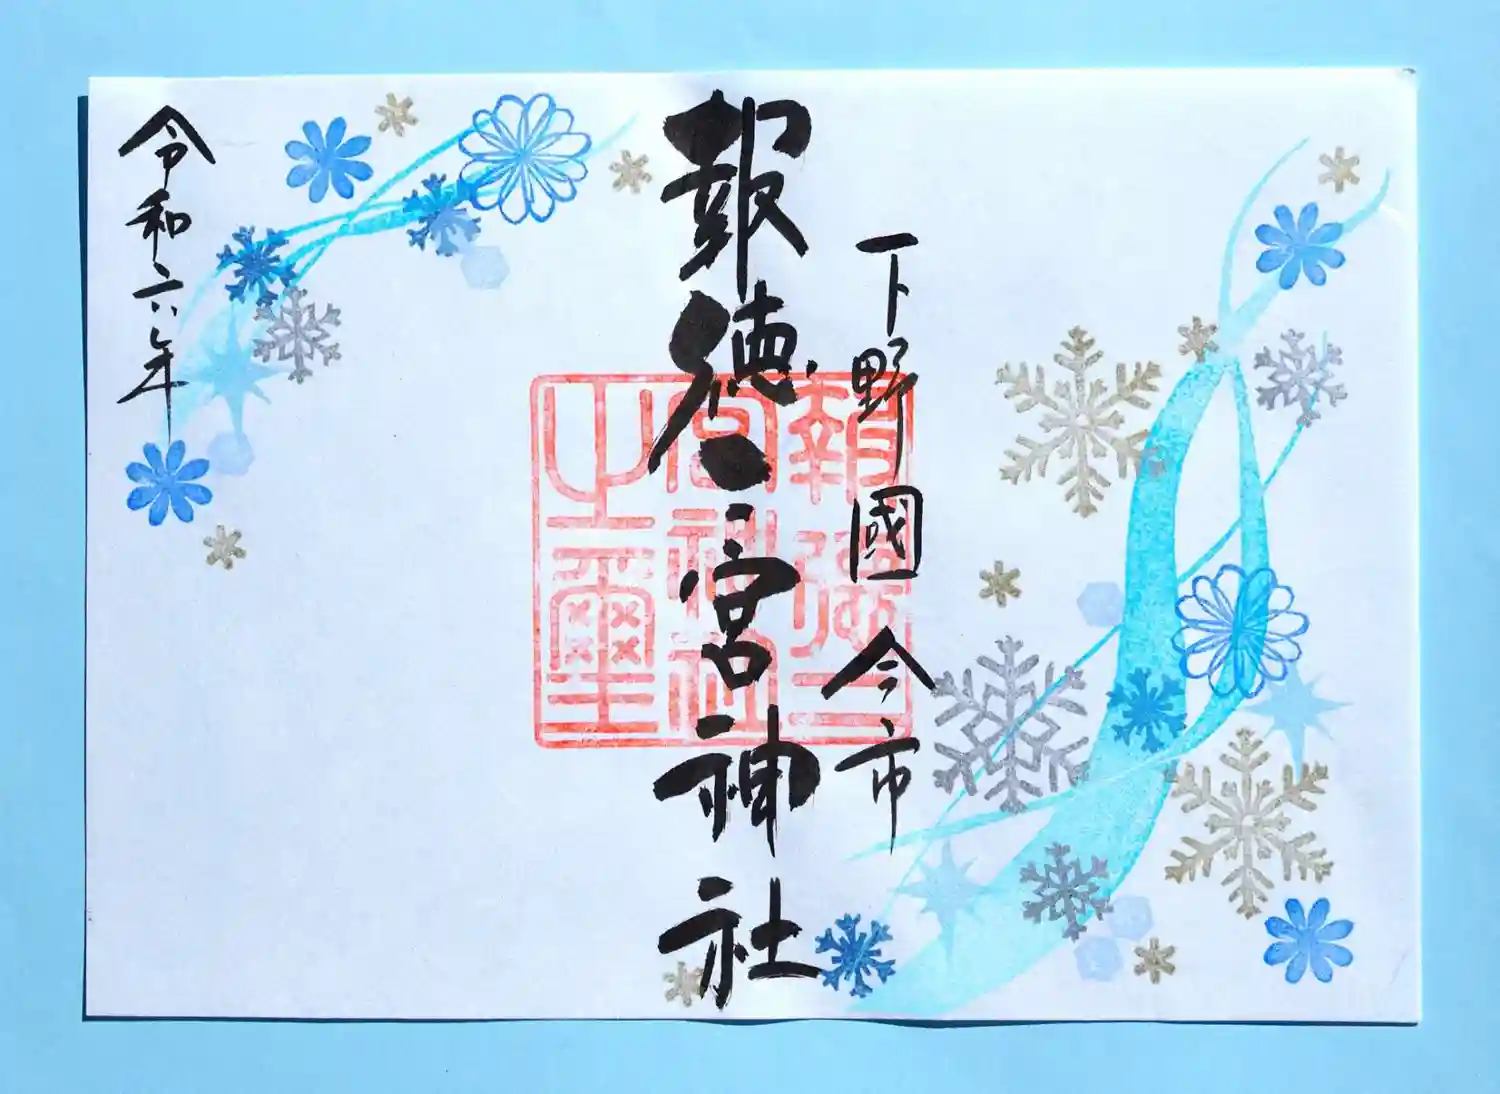 下野國今市
報徳二宮神社
報徳二宮神社之璽
令和六年